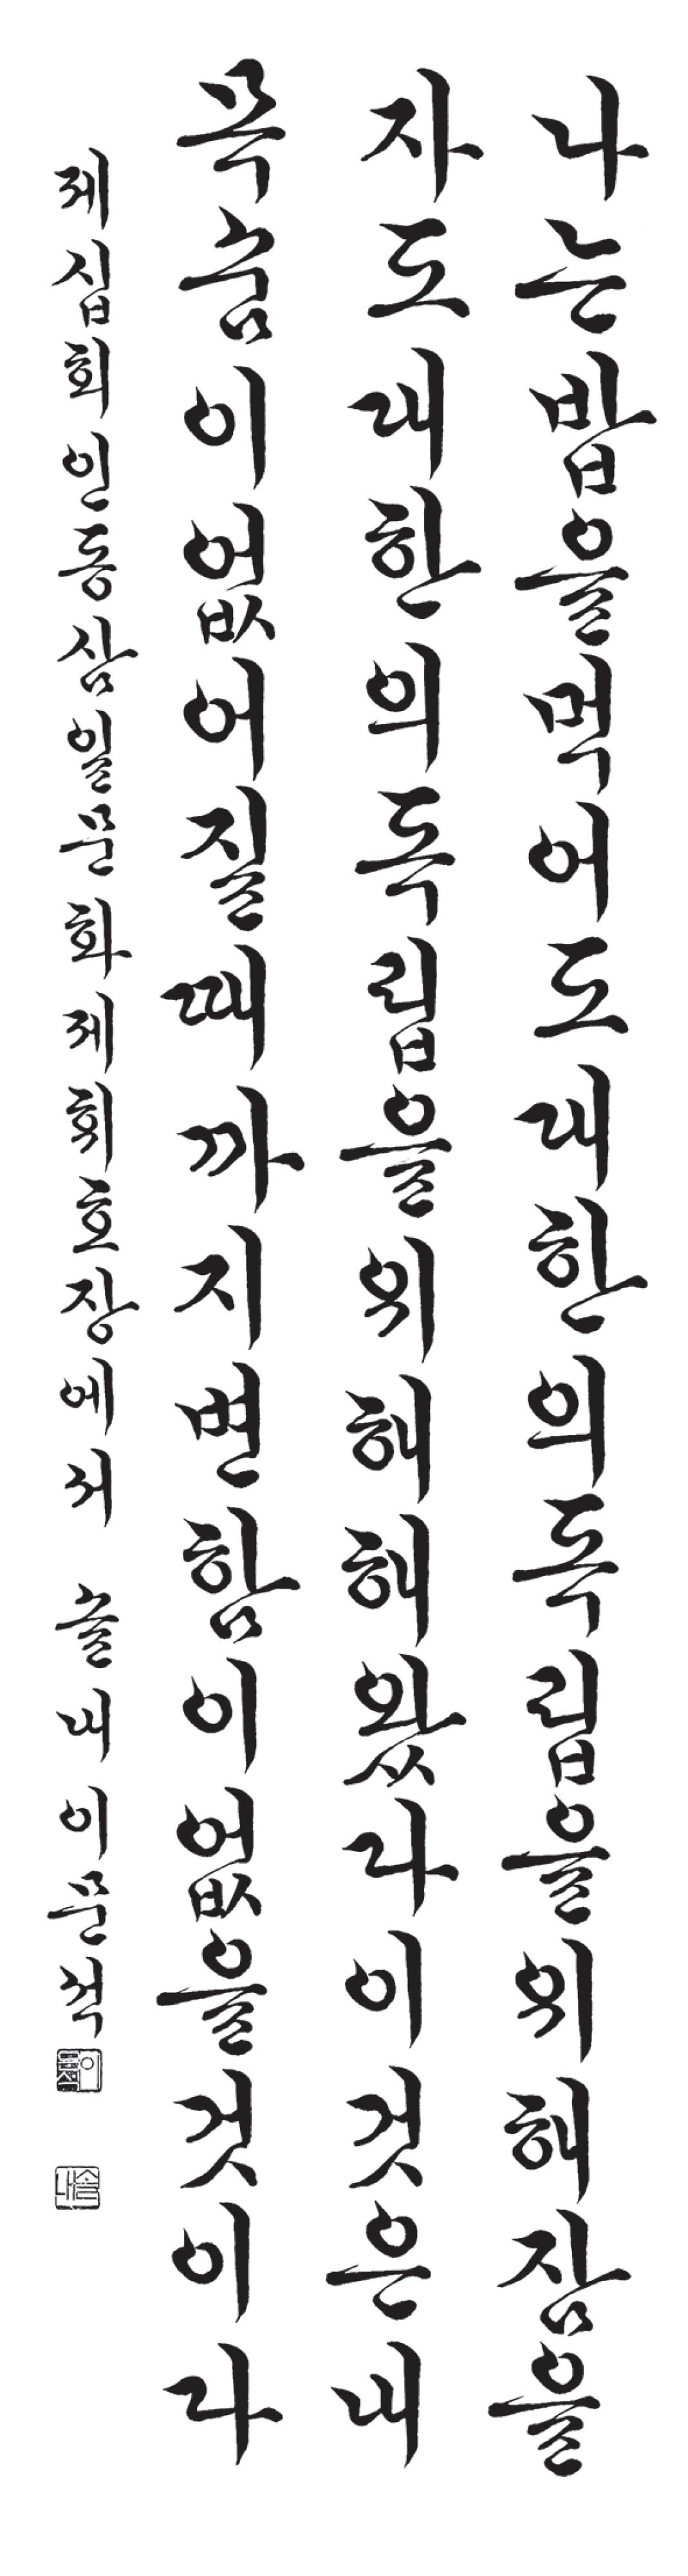 나는밥을먹어도대한의독립을위해잠을
자도대한의독립을위해해왔다이것은내
목숨이없어질때까지변함이없을것이다
제십회인동삼일문화제휘호장에서 솔내이문석